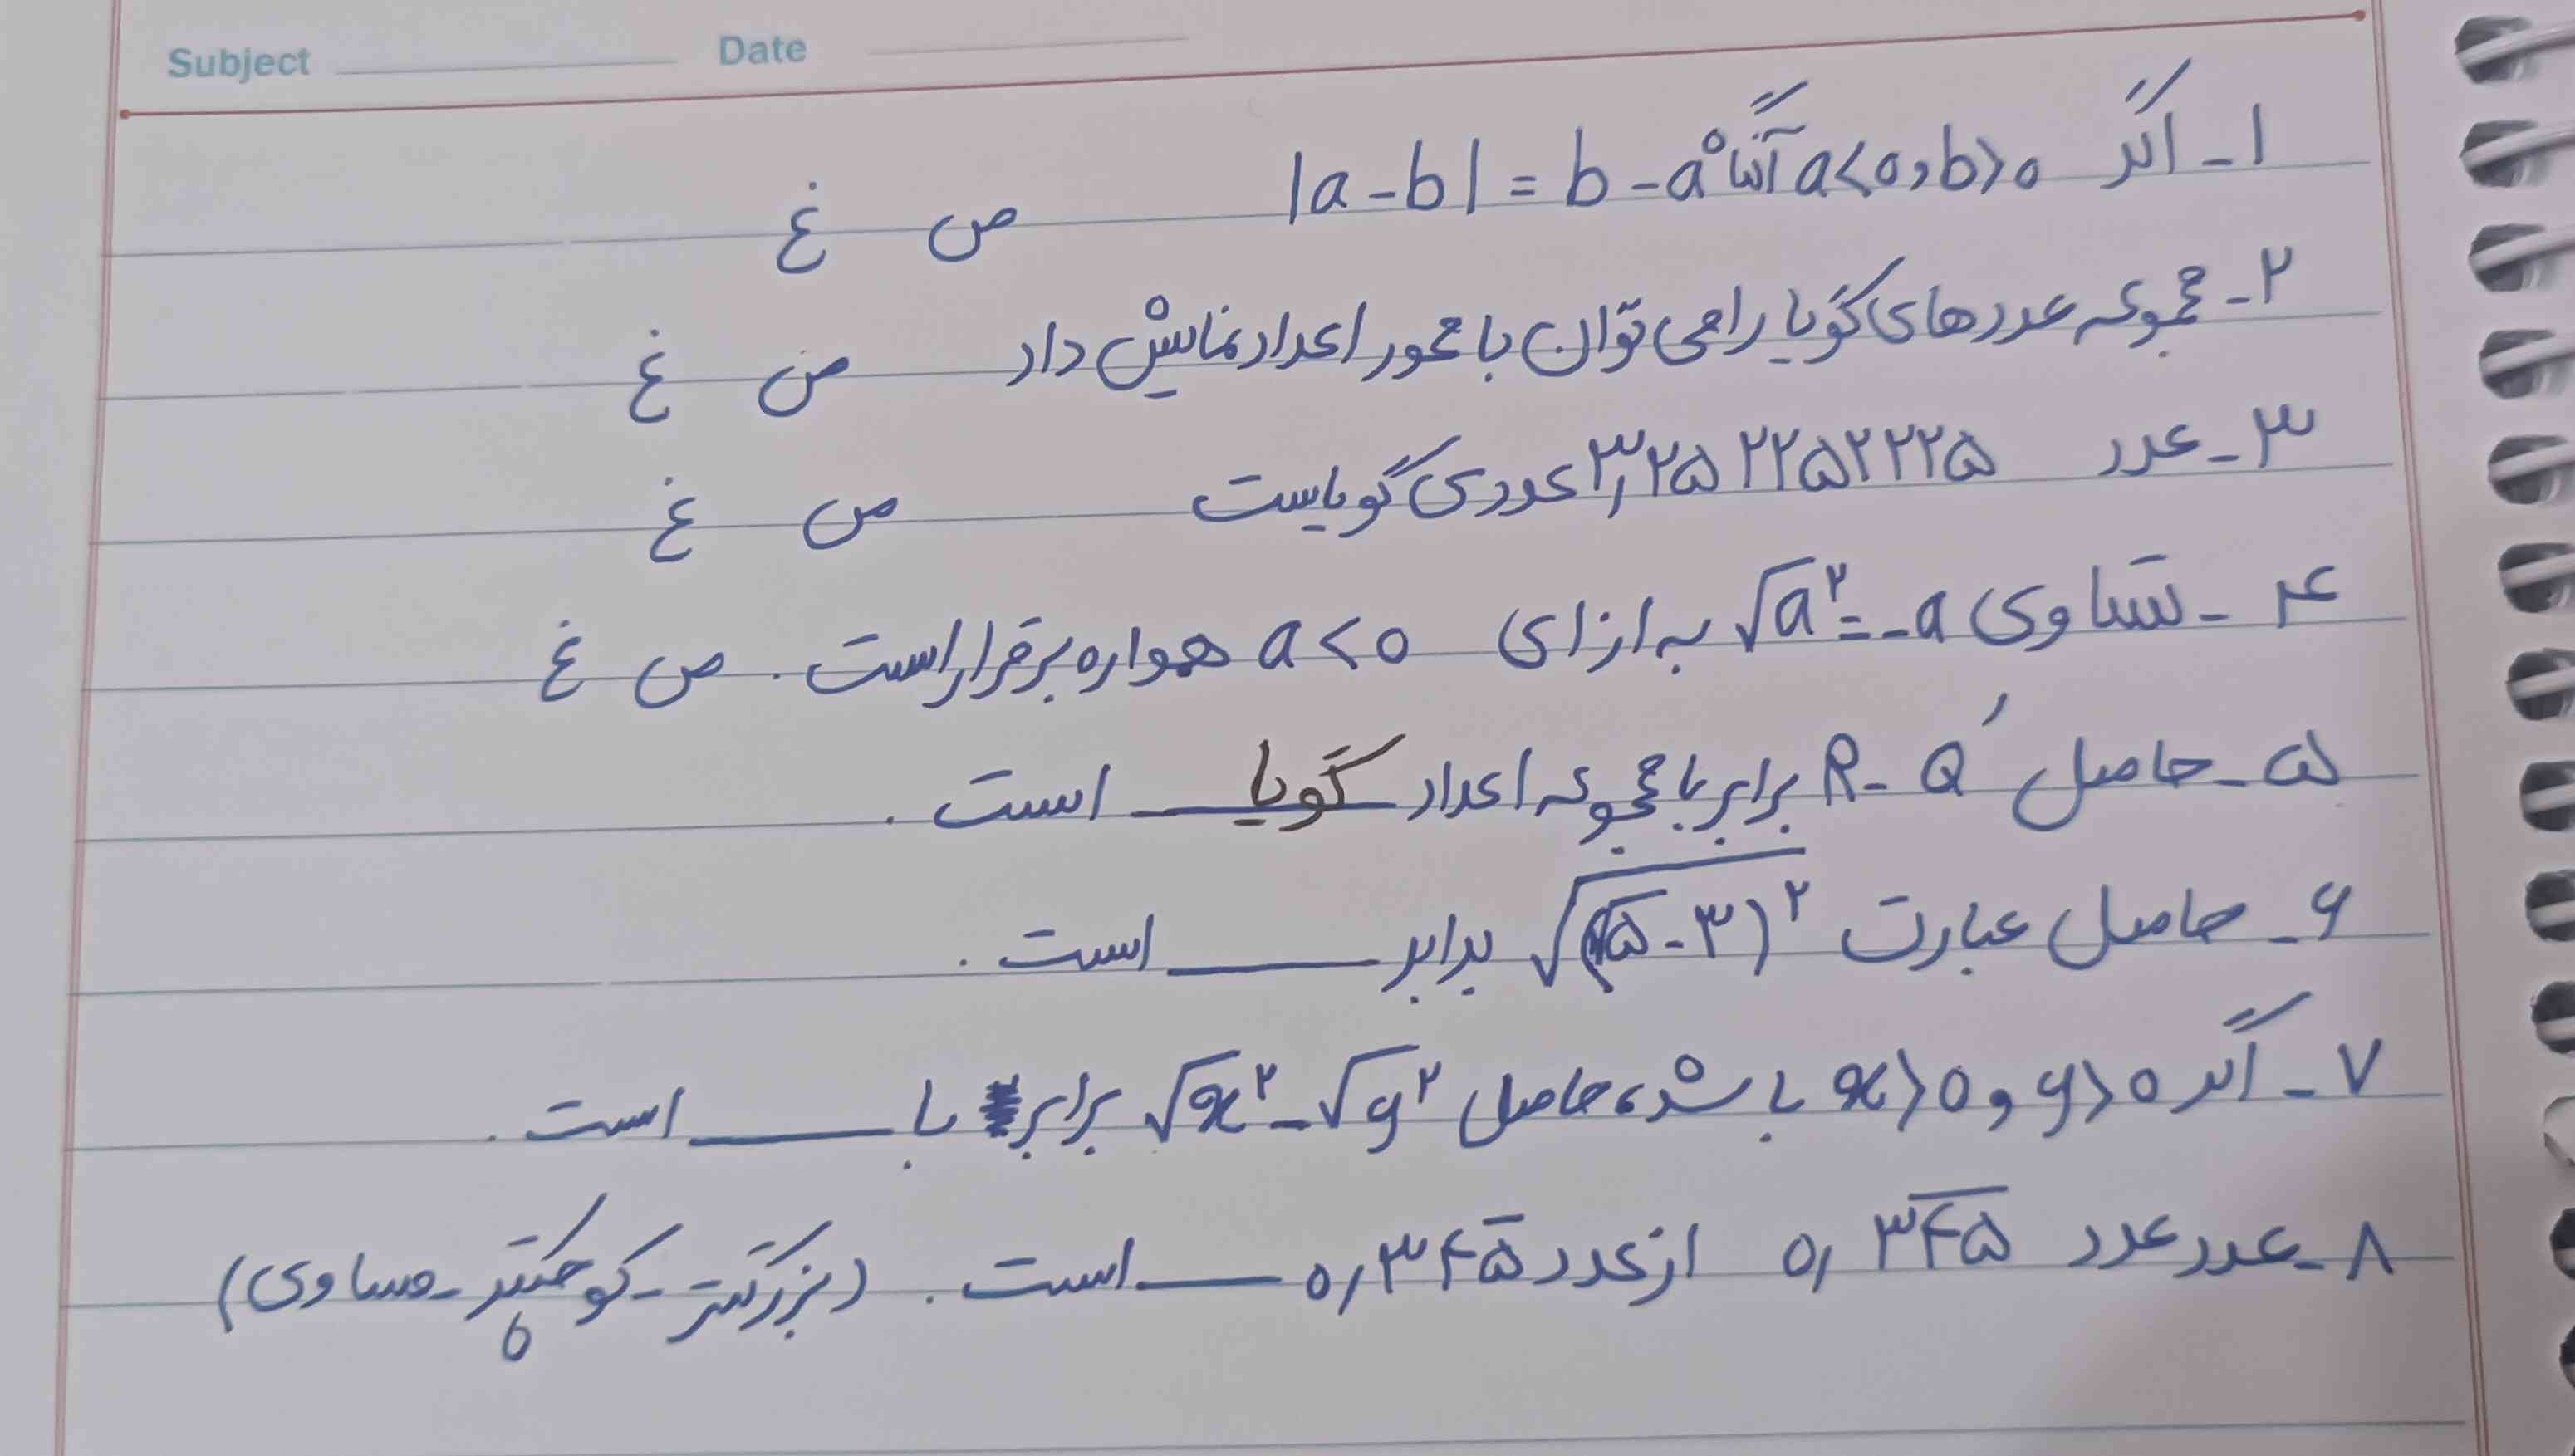 Subject Date
۱- اگر a<0 , b>0 آنگاه |a-b| = b-a ص غ
۲- مجموعه عددهای گویا را می توان با محور اعداد نمایش داد ص غ
۳- عدد ۳٫۲۵۲۲۵۲۲۲۵ عددی گویاست ص غ
۴- تساوی √a² = -a به ازای a<0 همواره برقرار است. ص غ
۵- حاصل R-Q′ برابر با مجموعه اعداد گویا است.
۶- حاصل عبارت √(√۵-۳)² برابر ____ است.
۷- اگر y>0 و x>0 باشد، حاصل √x² - √y² برابر با ____ است.
۸- عدد عدد ۰٫۳۴۵̅ از عدد ۰٫۳۴۵̅ ____ است. (بزرگتر - کوچکتر - مساوی)